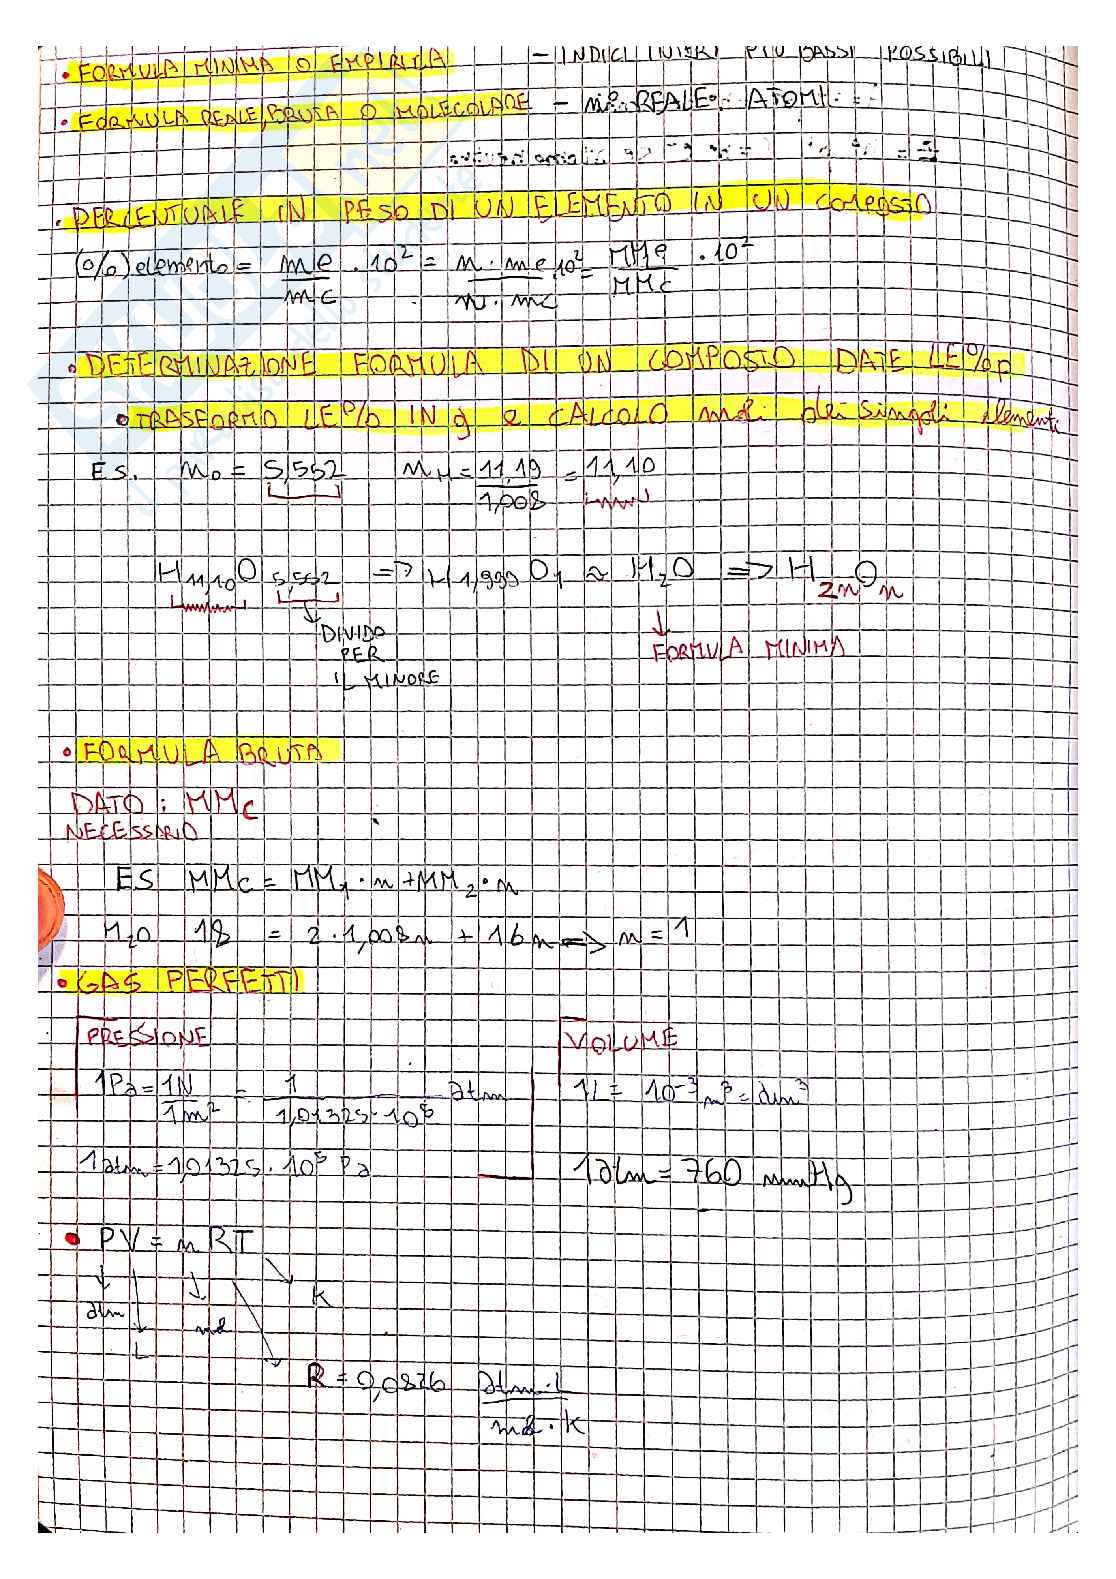 • FORMULA MINIMA O EMPIRICA – INDICI INTERI PIÙ BASSI POSSIBILI
• FORMULA REALE, BRUTA O MOLECOLARE – n° REALE ATOMI
• PERCENTUALE IN PESO DI UN ELEMENTO IN UN composto
(%) elemento = me/mc · 10² = n·me/n·mc · 10² = MMe/MMc · 10²
• DETERMINAZIONE FORMULA DI UN COMPOSTO DATE LE %p
• TRASFORMO LE % IN g e CALCOLO mol dei singoli elementi
Es. n₀ = 5,552 nH = 11,19/1,008 = 11,10
H11,10 O 5,552 => H1,999 O1 ≈ H₂O => H2n On
DIVIDO PER IL MINORE
FORMULA MINIMA
• FORMULA BRUTA
DATO : MMc
NECESSARIO
ES MMc = MM₁·n + MM₂·n
H₂O 18 = 2·1,008n + 16n => n = 1
• GAS PERFETTI
PRESSIONE VOLUME
1Pa = 1N/1m² = 1/1,01325·10⁵ atm 1L = 10⁻³ m³ = dm³
1atm = 1,01325·10⁵ Pa 1atm = 760 mmHg
• PV = nRT
atm L mol K
R = 0,0826 atm·L/mol·K